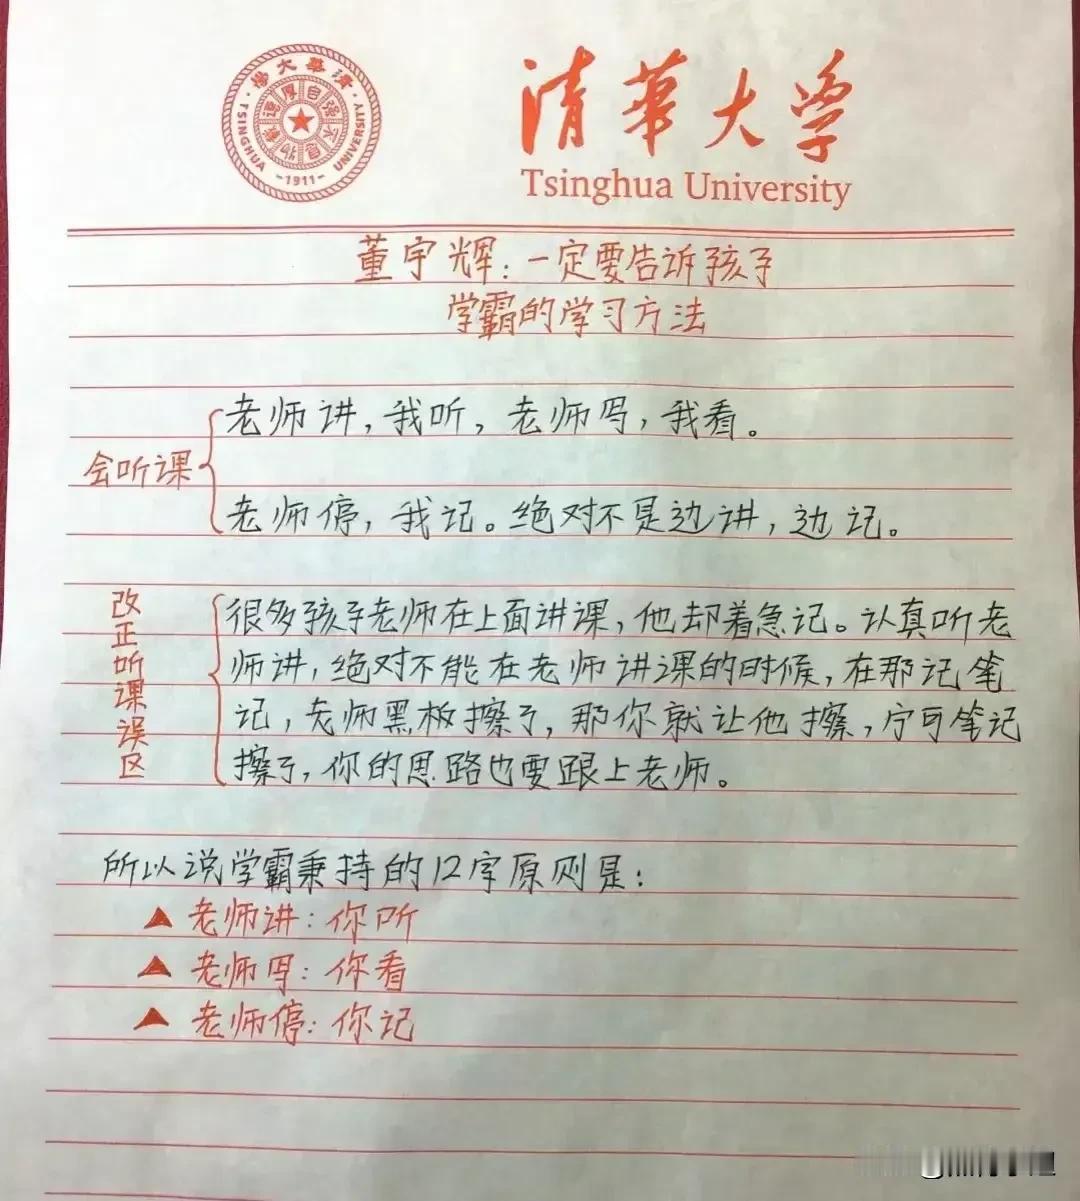 清华大学
TSINGHUA UNIVERSITY
自强不息
厚德载物
-1911-
清華大学
Tsinghua University
董宇辉：一定要告诉孩子
学霸的学习方法
会听课
老师讲，我听，老师写，我看。
老师停，我记。绝对不是边讲，边记。
改正听课误区
很多孩子老师在上面讲课，他却着急记。认真听老
师讲，绝对不能在老师讲课的时候，在那记笔
记，老师黑板擦了，那你就让他擦，宁可笔记
擦了，你的思路也要跟上老师。
所以说学霸秉持的12字原则是：
▲ 老师讲：你听
▲ 老师写：你看
▲ 老师停：你记